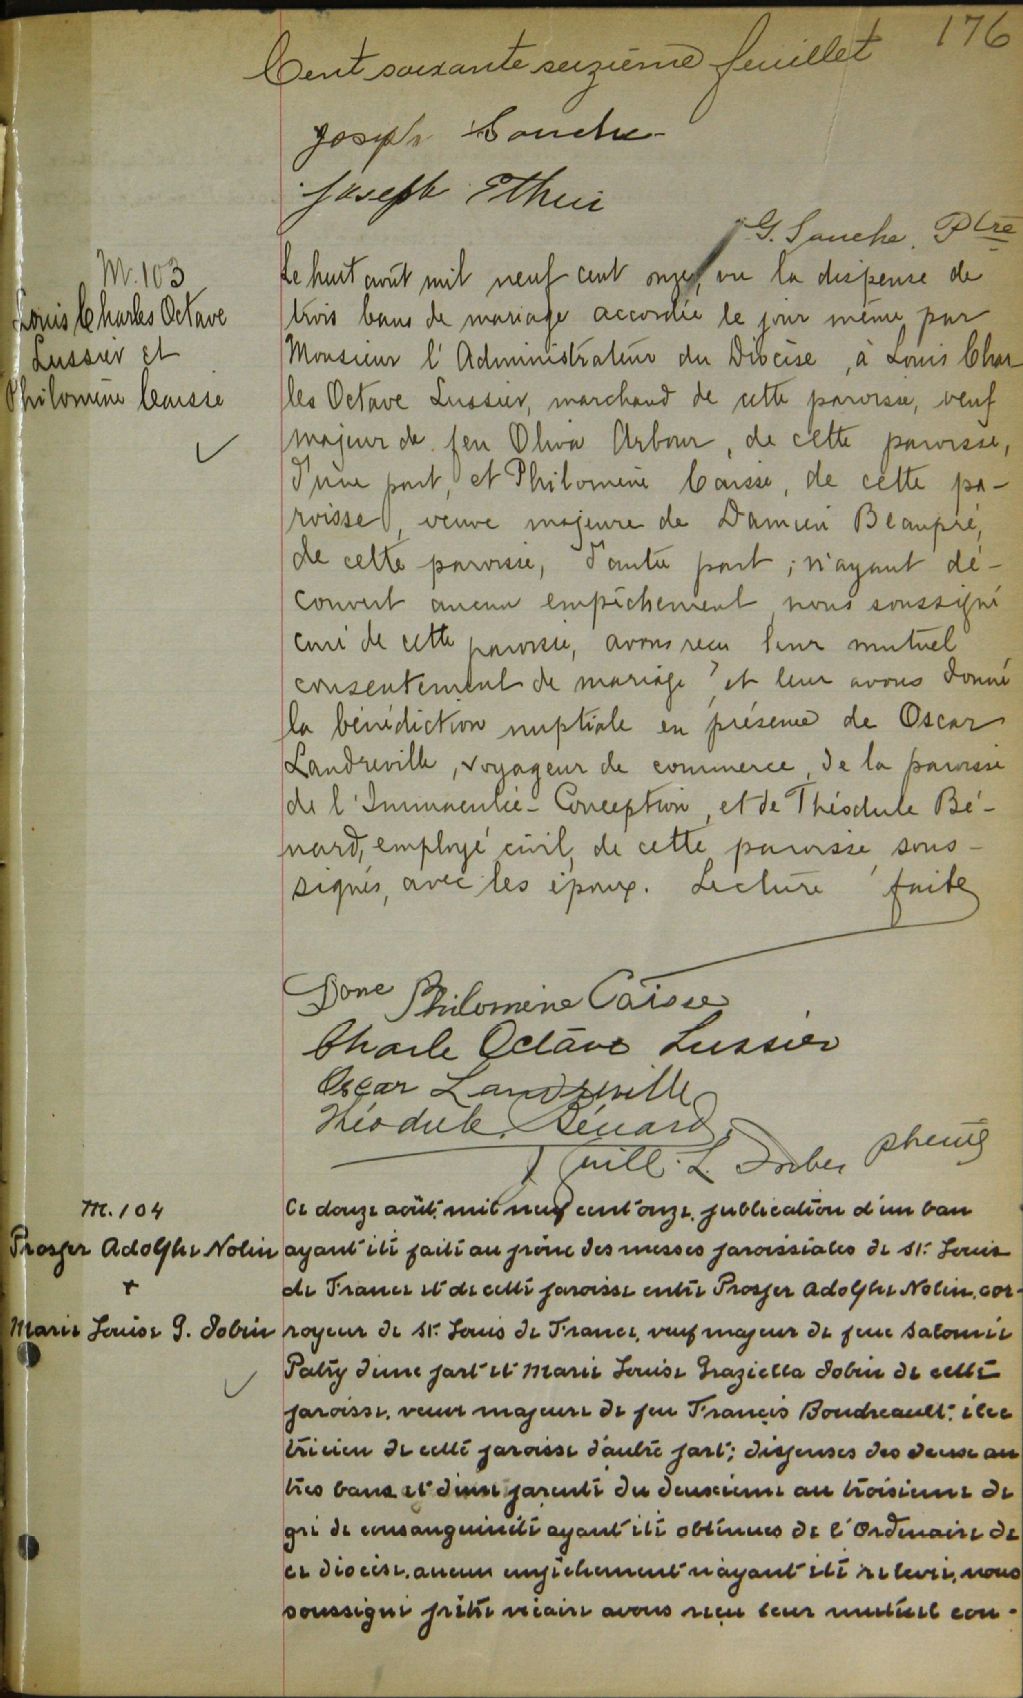 176
Cent soixante seizième feuillet
Joseph
Joseph Ethier
G. Ptre
M. 103
Louis Charles Octave
Lussier et
Philomène Caisse
Le huit août mil neuf cent onze, vu la dispense de
trois bans de mariage accordée le jour même par
Monsieur l'Administrateur du Diocèse, à Louis Char
les Octave Lussier, marchand de cette paroisse, veuf
majeur de feu Oliva Arbour, de cette paroisse,
d'une part, et Philomène Caisse, de cette pa-
roisse, veuve majeure de Damien Beaupré,
de cette paroisse, d'autre part; n'ayant dé-
couvert aucun empêchement, nous soussigné
curé de cette paroisse, avons reçu leur mutuel
consentement de mariage, et leur avons donné
la bénédiction nuptiale en présence de Oscar
Landreville, voyageur de commerce, de la paroisse
de l'Immaculée-Conception, et de Théodule Bé-
nard, employé civil, de cette paroisse, sous-
signés, avec les époux. Lecture faite
Philomène Caisse
Charle Octave Lussier
Oscar Landreville
Théodule Bénard
M. 104
Prosper Adolphe Nolin
+
Marie Louise G. Dobin
Ce douze août, mil neuf cent onze, publication d'un ban
ayant été faite au prône des messes paroissiales de St. Louis
de France et de cette paroisse entre Prosper Adolphe Nolin, cor-
royeur de St. Louis de France, veuf majeur de feue Salomée
Patry d'une part et Marie Louise Graziella Dobin de cette
paroisse, veuve majeure de feu Francis Boudreault, élec
tricien de cette paroisse d'autre part; dispenses des deux au
tres bans et d'une parenté du deuxième au troisième de
gré de consanguinité ayant été obtenues de l'Ordinaire de
ce diocèse, aucun empêchement n'ayant été relevé, nous
soussigné prêtre vicaire avons reçu leur mutuel con-